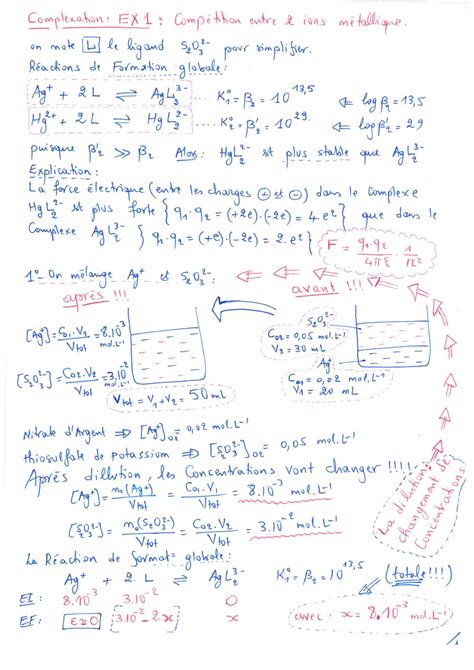 Complexation: EX1: Compétition entre 2 ions métallique.
on note [L] le ligand S₂O₃²⁻ pour simplifier.
Réactions de Formation globale:
Ag⁺ + 2L ⇌ AgL₂³⁻ K₁° = β₂ = 10^13,5 ⇐ log β₂ = 13,5
Hg²⁺ + 2L ⇌ HgL₂²⁻ K₂° = β'₂ = 10^29. ⇐ log β'₂ = 29
puisque β'₂ >> β₂ Alors: HgL₂²⁻ est plus stable que AgL₂³⁻
Explication:
La force électrique (entre les charges ⊕ et ⊖) dans le Complexe
HgL₂²⁻ est plus forte {q₁.q₂ = (+2e).(-2e) = 4e²} que dans le
Complexe AgL₂³⁻ {q₁.q₂ = (+e).(-2e) = 2.e²}
F = q₁.q₂/4πε . 1/r²
1° On mélange Ag⁺ et S₂O₃²⁻:
après !!! avant !!!
[Ag⁺] = C₀₁.V₁/Vtot = 8.10⁻³ mol.L⁻¹
[S₂O₃²⁻] = C₀₂.V₂/Vtot = 3.10⁻² mol.L⁻¹
Vtot = V₁+V₂ = 50 mL
S₂O₃²⁻
C₀₂ = 0,05 mol.L⁻¹
V₂ = 30 mL
Ag⁺
C₀₁ = 0,02 mol.L⁻¹
V₁ = 20 mL
Nitrate d'Argent ⇒ [Ag⁺]₀₁ = 0,02 mol.L⁻¹
thiosulfate de potassium ⇒ [S₂O₃²⁻]₀₂ = 0,05 mol.L⁻¹
Après dillution, les Concentrations vont changer !!!!
[Ag⁺] = n₀(Ag⁺)/Vtot = C₀₁.V₁/Vtot = 8.10⁻³ mol.L⁻¹
[S₂O₃²⁻] = n₀(S₂O₃²⁻)/Vtot = C₀₂.V₂/Vtot = 3.10⁻² mol.L⁻¹
La dilution:
changement de
Concentrations
La Réaction de format° globale:
Ag⁺ + 2L ⇌ AgL₂³⁻ K₁° = β₂ = 10^13,5 (totale!!!)
EI: 8.10⁻³ 3.10⁻² 0
EF: ε≃0 3.10⁻²-2x x avec: x = 8.10⁻³ mol.L⁻¹